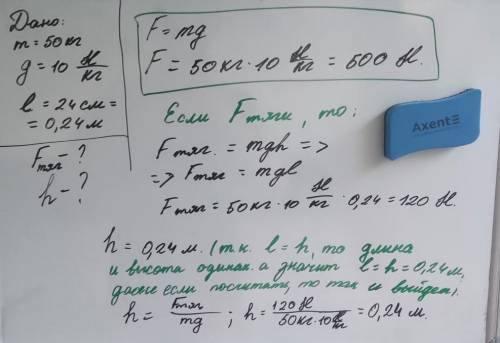 Дано:
m = 50 кг
g = 10 Н/кг
l = 24 см =
= 0,24 м
Fтяг - ?
h - ?
F = mg
F = 50 кг · 10 Н/кг = 500 Н.
Если Fтяги, то:
Fтяг. = mgh =>
=> Fтяг = mgl
Fтяг = 50 кг · 10 Н/кг · 0,24 = 120 Н.
AxentE
h = 0,24 м. (т.к. l = h, то длина
и высота одинак. а значит l = h = 0,24 м,
даже если посчитать, то так и выйдет).
h = Fтяг/mg ; h = 120 Н/50 кг · 10 Н/кг = 0,24 м.